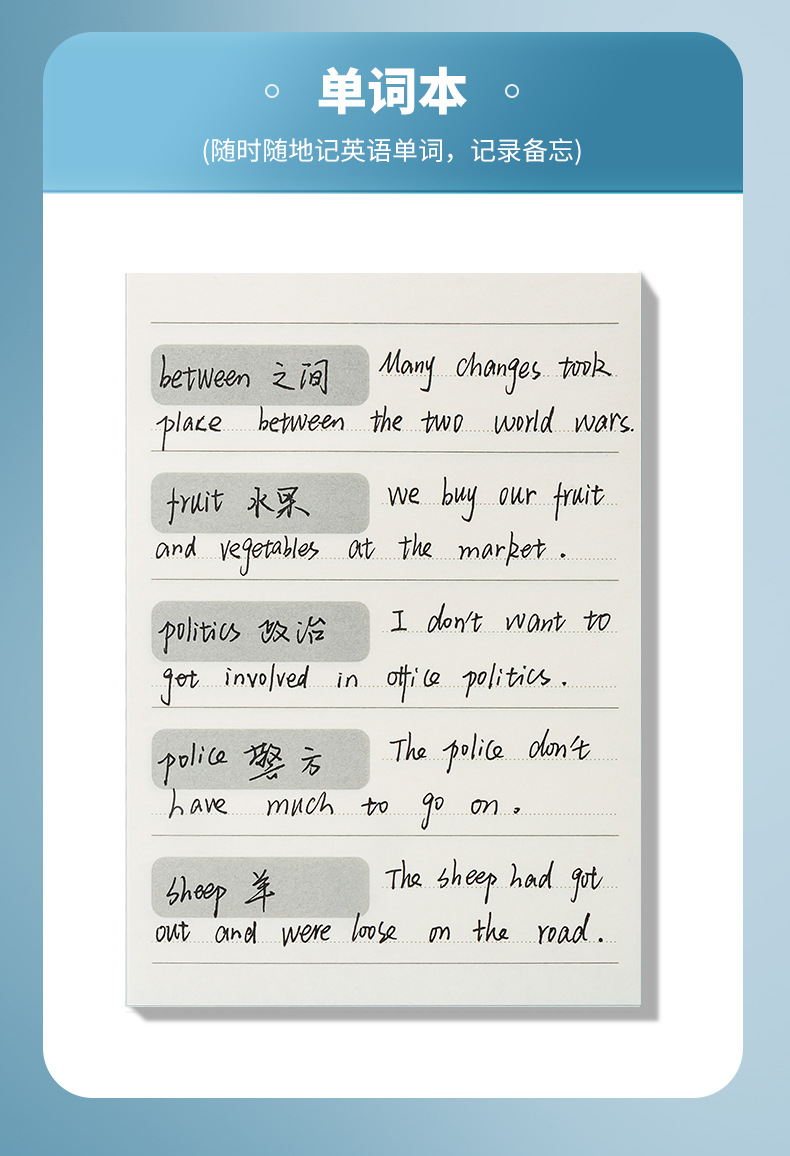 单词本
(随时随地记英语单词，记录备忘)
between 之间 Many changes took
place between the two world wars.
fruit 水果 we buy our fruit
and vegetables at the market.
politics 政治 I don't want to
get involved in office politics.
police 警方 The police don't
have much to go on.
sheep 羊 The sheep had got
out and were loose on the road.